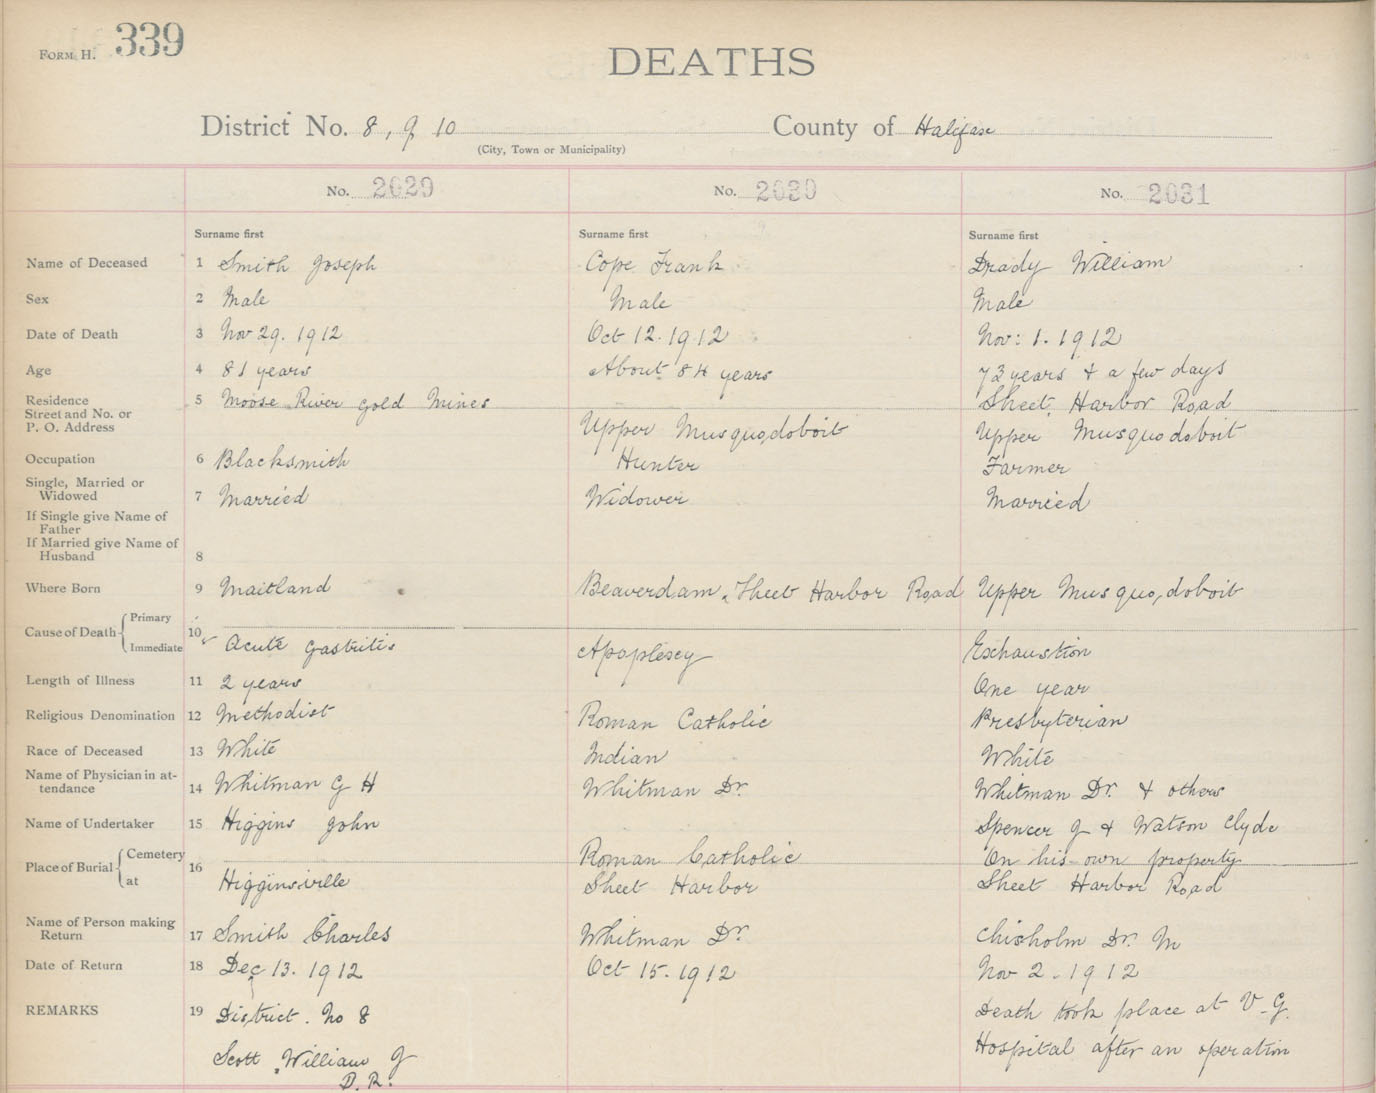 FORM H. 339
DEATHS
District No. 8, 9 10 County of Halifax
(City, Town or Municipality)
No. 2029 No. 2030 No. 2031
Surname first Surname first Surname first
Name of Deceased 1 Smith Joseph Cope Frank Drady William
Sex 2 Male Male Male
Date of Death 3 Nov 29. 1912 Oct 12. 1912 Nov: 1. 1912
Age 4 81 years About 84 years 73 years + a few days
Residence 5 Moose River Gold Mines Sheet Harbor Road
Street and No. or
P. O. Address Upper Musquodoboit Upper Musquodoboit
Occupation 6 Blacksmith Hunter Farmer
Single, Married or
Widowed 7 Married Widower Married
If Single give Name of
Father
If Married give Name of
Husband 8
Where Born 9 Maitland Beaverdam, Sheet Harbor Road Upper Musquodoboit
Cause of Death { Primary
10 Immediate Acute Gastritis Apoplexy Exhaustion
Length of Illness 11 2 years One year
Religious Denomination 12 Methodist Roman Catholic Presbyterian
Race of Deceased 13 White Indian White
Name of Physician in at-
tendance 14 Whitman G H Whitman Dr. Whitman Dr. + others
Name of Undertaker 15 Higgins John Spencer J + Watson Clyde
Place of Burial { Cemetery 16 Roman Catholic On his own property
at Higginsville Sheet Harbor Sheet Harbor Road
Name of Person making
Return 17 Smith Charles Whitman Dr. Chisholm Dr. M
Date of Return 18 Dec 13. 1912 Oct 15. 1912 Nov 2. 1912
REMARKS 19 District. No 8 Death took place at V. G.
Scott, William J Hospital after an operation
D. R.